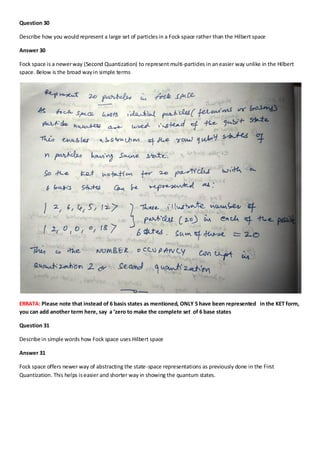 Question 30
Describe how you would represent a large set of particles in a Fock space rather than the Hilbert space
Answer 30
Fock space is a newer way (Second Quantization) to represent multi-particles in an easier way unlike in the Hilbert
space. Below is the broad way in simple terms
Represent 20 particles in fock space
As fock space hosts identical particles (fermions or bosons)
particle numbers are used instead of the qubit state
This enables abstraction of the raw qubit states of
n particles having same state.
So the ket notation for 20 particles with a
6 basis states can be represented as:
| 2, 6, 4, 5, 12> } These illustrate number of
particles (20) in each of the
| 2, 0, 0, 0, 18> 6 states. Sum of these = 20
This is the NUMBER OCCUPANCY concept in
Quantization 2 or second quantization
ERRATA: Please note that instead of 6 basis states as mentioned, ONLY 5 have been represented in the KET form,
you can add another term here, say a 'zero to make the complete set of 6 base states
Question 31
Describe in simple words how Fock space uses Hilbert space
Answer 31
Fock space offers newer way of abstracting the state-space representations as previously done in the First
Quantization. This helps is easier and shorter way in showing the quantum states.